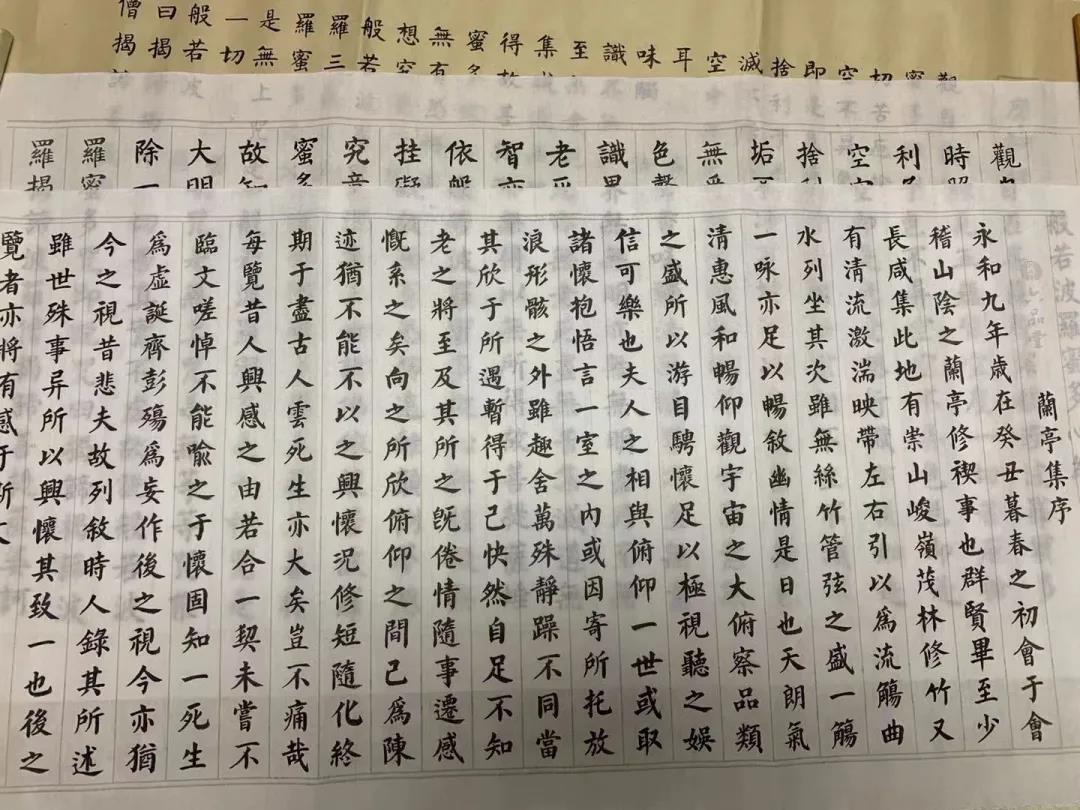 蘭亭集序
永和九年歲在癸丑暮春之初會于會
稽山陰之蘭亭修禊事也群賢畢至少
長咸集此地有崇山峻嶺茂林修竹又
有清流激湍映帶左右引以爲流觴曲
水列坐其次雖無絲竹管弦之盛一觴
一咏亦足以暢敘幽情是日也天朗氣
清惠風和暢仰觀宇宙之大俯察品類
之盛所以游目騁懷足以極視聽之娛
信可樂也夫人之相與俯仰一世或取
諸懷抱悟言一室之內或因寄所托放
浪形骸之外雖趣舍萬殊靜躁不同當
其欣于所遇暫得于己快然自足不知
老之將至及其所之既倦情隨事遷感
慨系之矣向之所欣俯仰之間已爲陳
迹猶不能不以之興懷況修短隨化終
期于盡古人雲死生亦大矣豈不痛哉
每覽昔人興感之由若合一契未嘗不
臨文嗟悼不能喻之于懷固知一死生
爲虛誕齊彭殤爲妄作後之視今亦猶
今之視昔悲夫故列敘時人錄其所述
雖世殊事异所以興懷其致一也後之
覽者亦將有感于斯文
觀自
時照
利子
空空
捨利
垢不
無受
色聲
識界
老死
智亦
依般
挂礙
究竟
蜜多
故知
大明
除一
羅蜜多
羅揭諦
觀
蜜
切苦
空不
即是
捨利
滅
空
耳
味
識
至
集
得故
蜜多
無有
想
般若
羅三
羅蜜
是無上
一切
般若
曰揭
僧揭諦